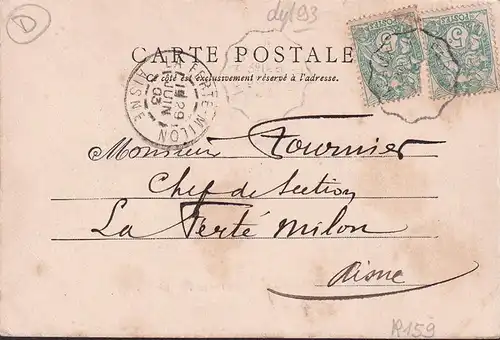 D
dyl93
CARTE POSTALE
Ce côté est exclusivement réservé à l'adresse.
POSTES
5
POSTES
5
LA FERTÉ-MILON
AISNE
29
JUIN
03
Monsieur Fournier
Chef de Section
La Ferté milon
Aisne
R159